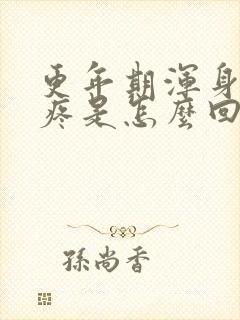 更年期渾身
疼是怎麼回
孫尚香